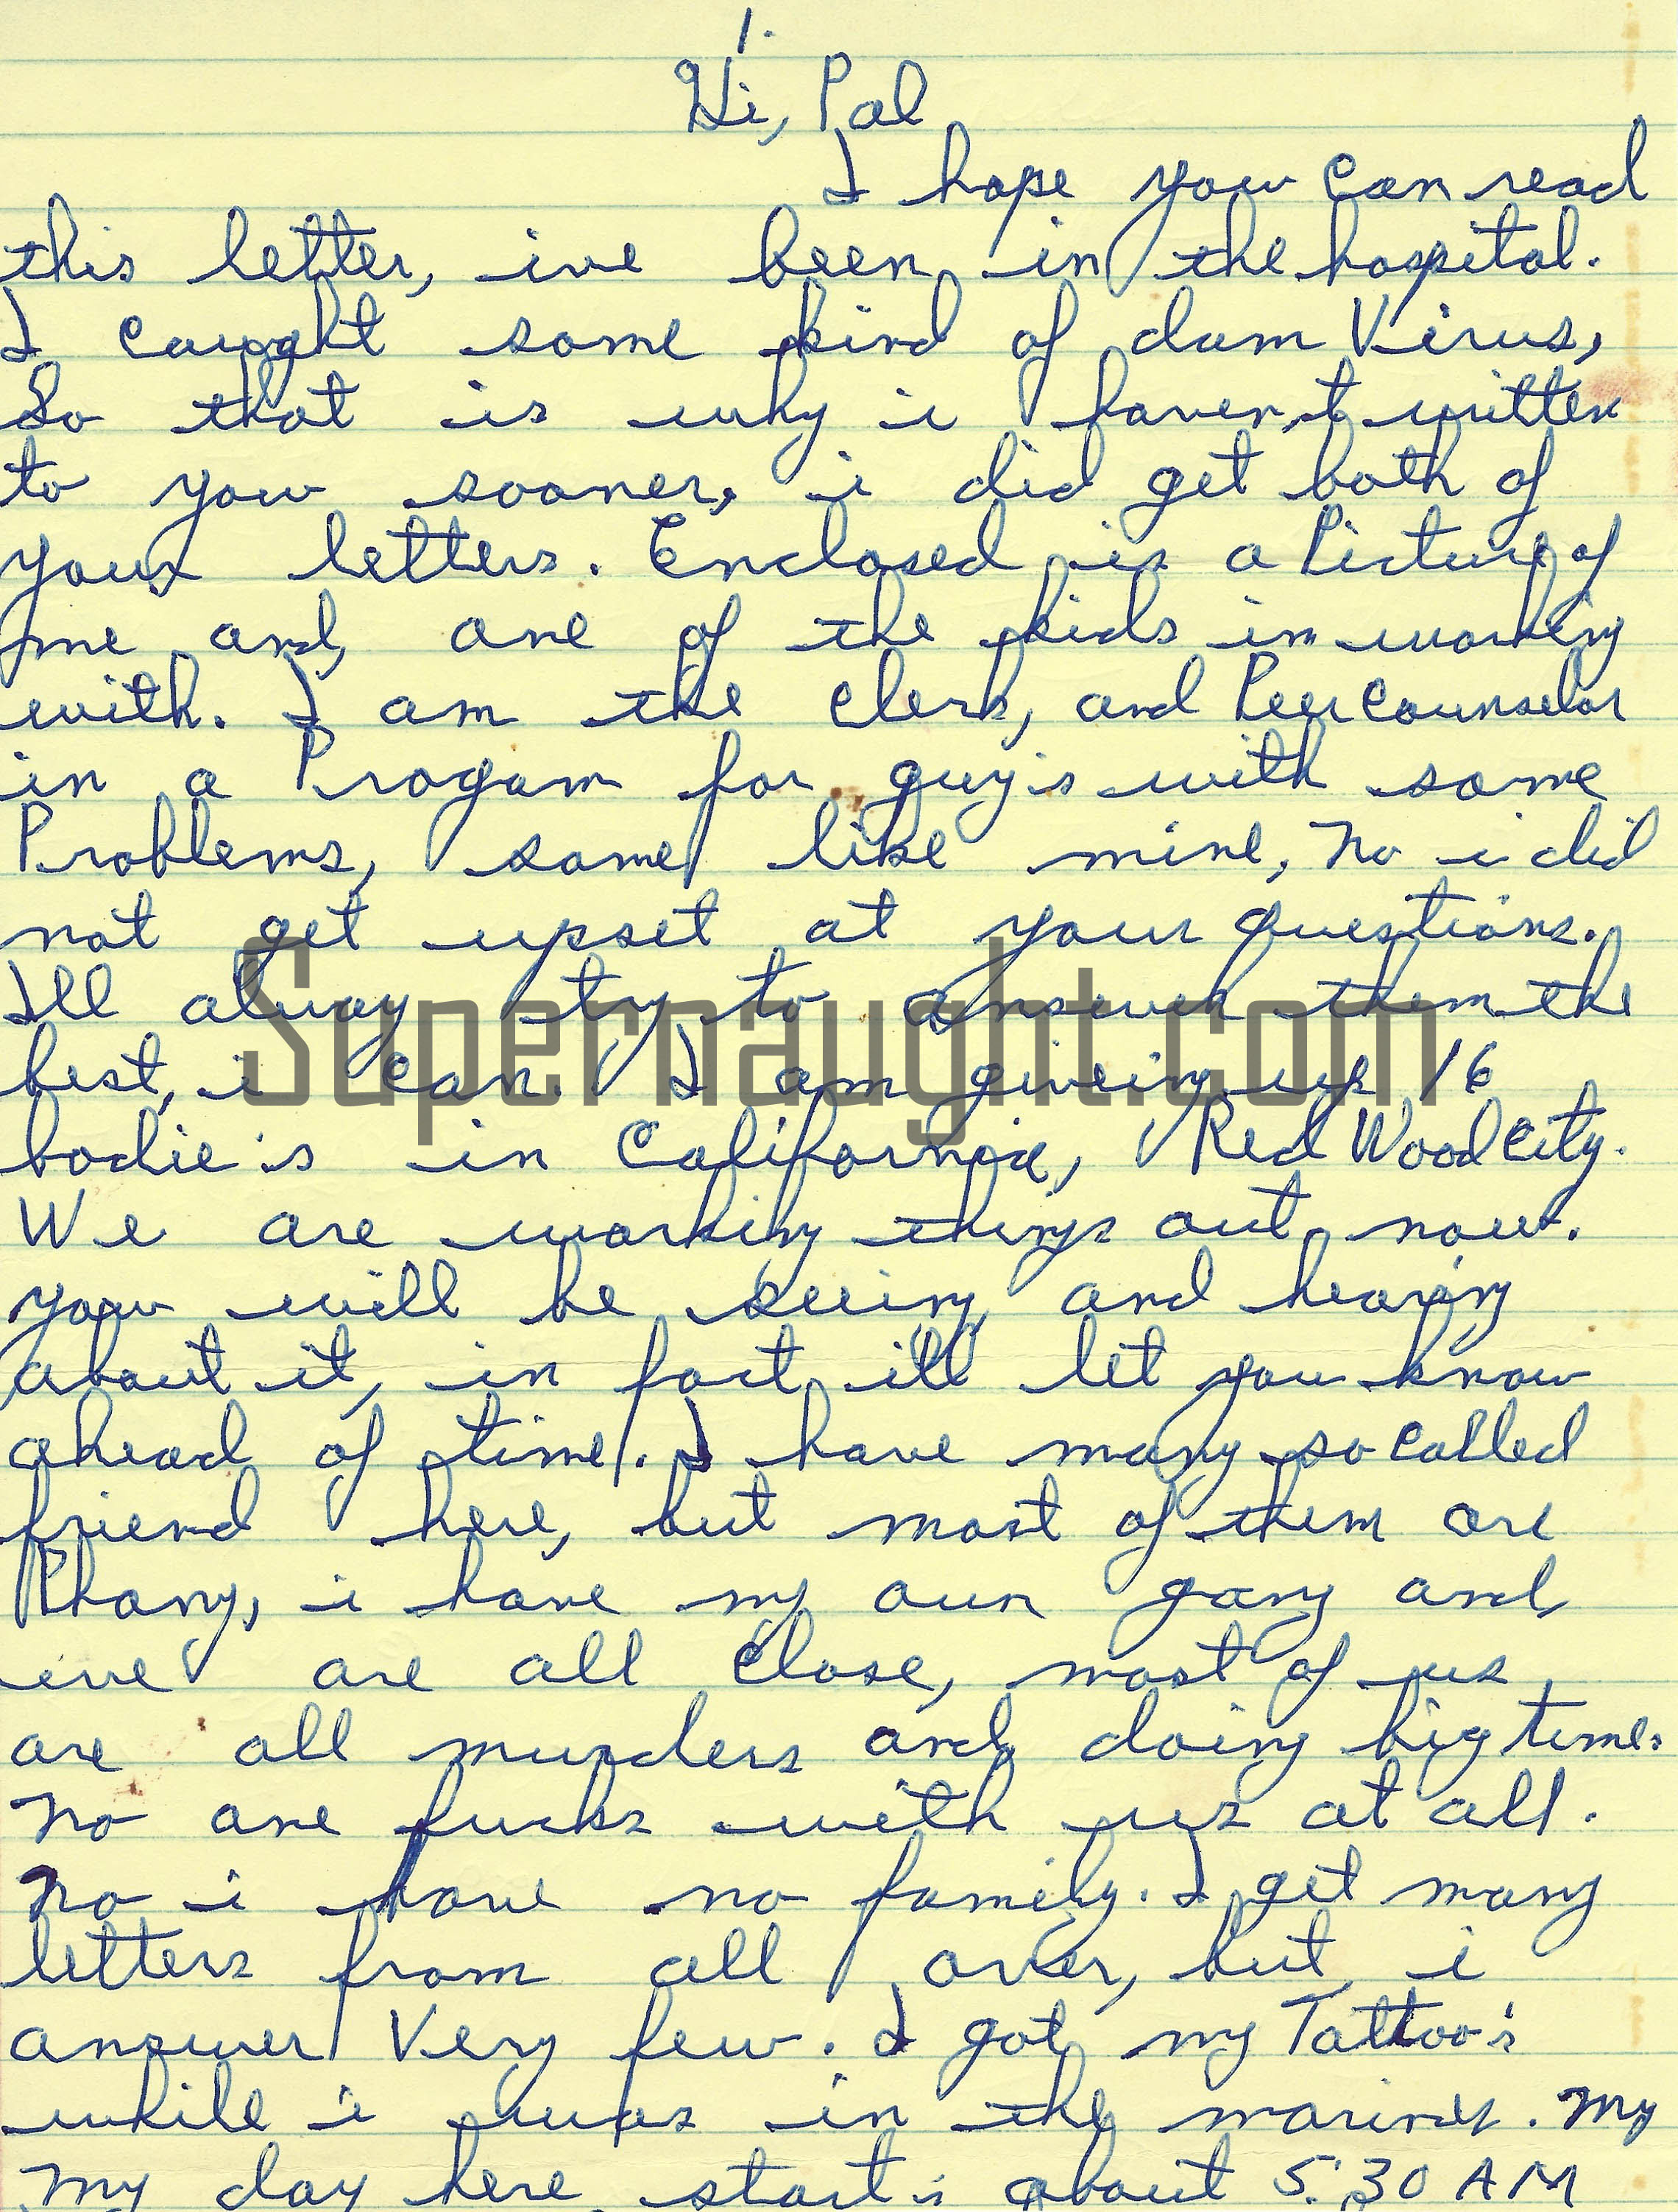 1.
Hi, Pal
I hope you can read
this letter, ive been in the hospital.
I caught some kind of dam Virus,
So that is why i haven,t written
to you sooner, i did get both of
your letters. Enclosed is a Picture of
me and, one of the kids im working
with. I am the Clerk, and Peer Counselor
in a Progam for guy's with some
Problems, some like mine, No i did
not get upset at your questions.
Ill alway try to answer them the
best, i can. I am giveing up 16
bodie's in California, Red Wood City.
We are working things out now.
you will be seeing and hearing
about it, in fact ill let you know
ahead of time. I have many so called
friend here, but most of them are
Phony, i have my own gang and,
we are all Close, most of us
are all murders and doing big time.
No one fucks with us at all.
No i have no family. I get many
letters from all over, but i
answer Very few. I got my Tattoo's
while i was in the marines. My
My day here start's about 5:30 AM
Supernaught.com